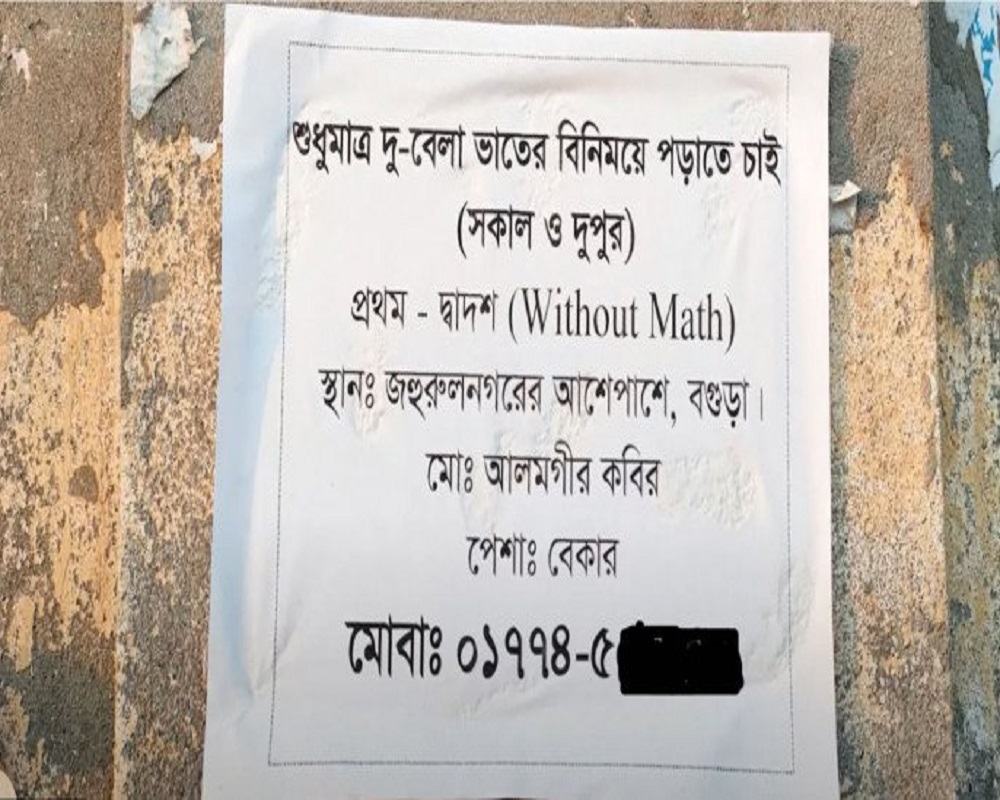 শুধুমাত্র দু-বেলা ভাতের বিনিময়ে পড়াতে চাই
(সকাল ও দুপুর)
প্রথম - দ্বাদশ (Without Math)
স্থানঃ জহুরুলনগরের আশেপাশে, বগুড়া।
মোঃ আলমগীর কবির
পেশাঃ বেকার
মোবাঃ ০১৭৭৪-৫